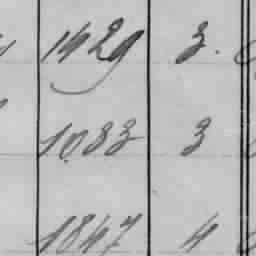 1429 3.
1083 3
1847 4